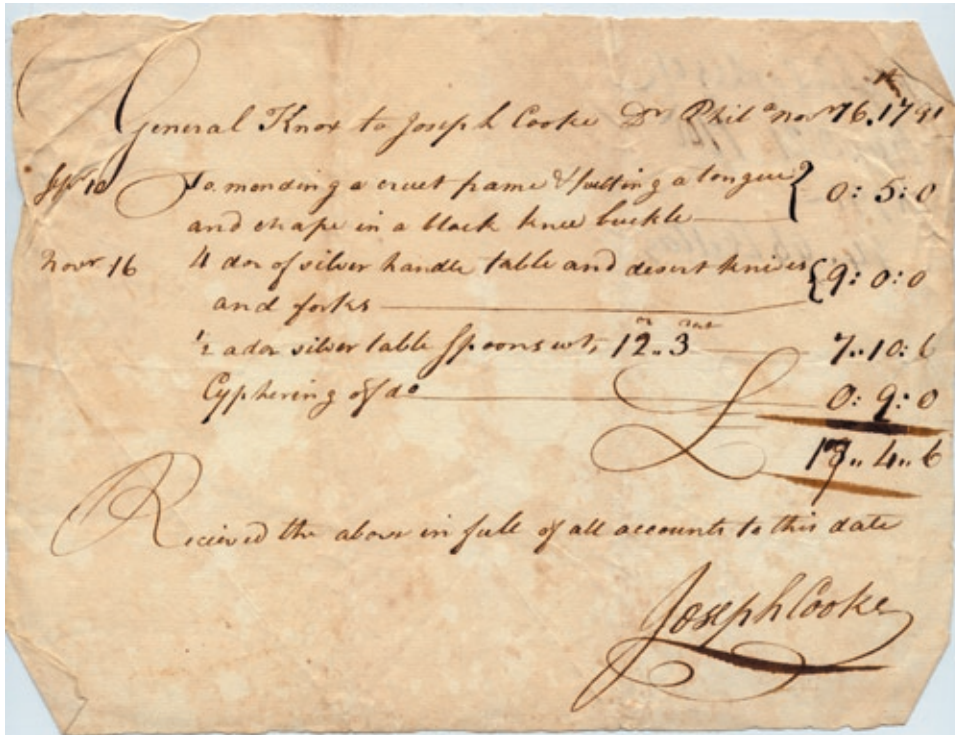 General Knox to Joseph Cooke Dr Phila Novr 16, 1791
Sepr 10 To mending a cruet frame & putting a tongue
and chape in a black knee buckle 0: 5: 0
Novr 16 4 doz of silver handle table and desert knives 9: 0: 0
and forks
½ a doz silver table Spoons wt, 12 oz 3 dwt 7.. 10: 6
Cyphering of do 0: 9: 0
L 17.. 4.. 6
Recieved the above in full of all accounts to this date
Joseph Cooke